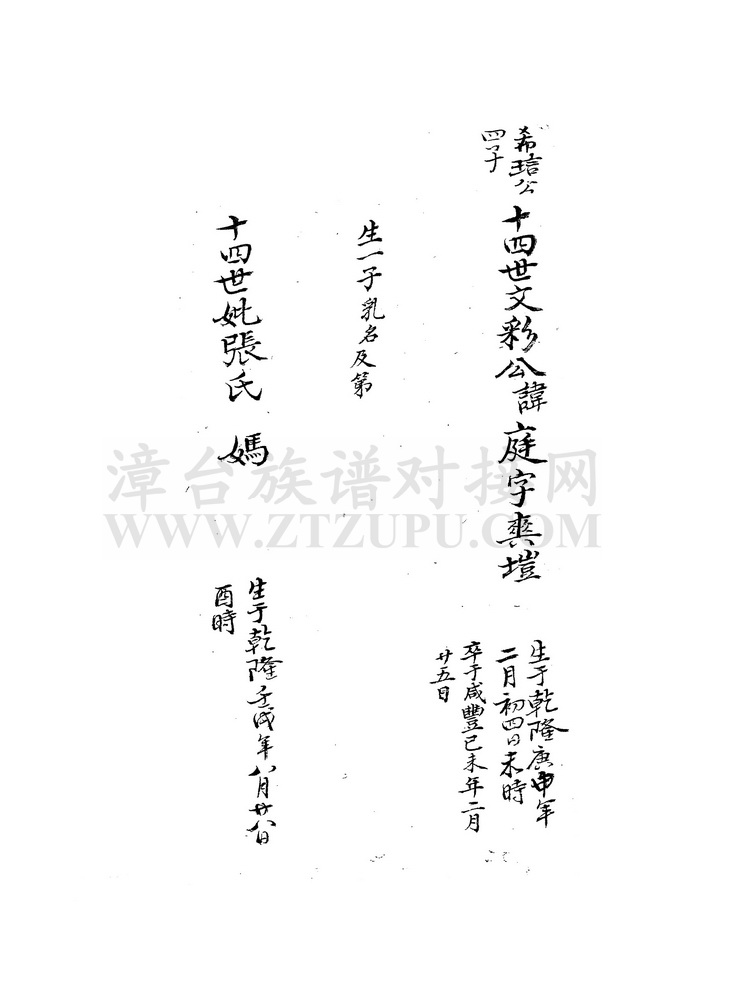 希琂公
四子
十四世文彩公諱庭字爽塏
生于乾隆庚申年
二月初四日未時
卒于咸豐己未年二月
廿五日
生一子乳名及第
十四世妣張氏 媽
生于乾隆壬戌年八月廿八日
酉時
漳台族谱对接网
WWW.ZTZUPU.COM